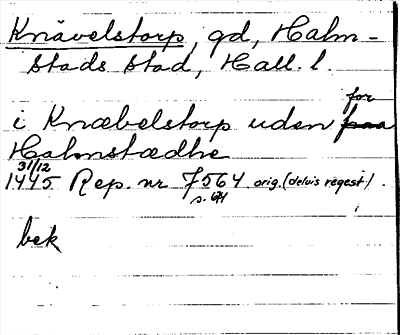 Knävelstorp, gd, Halm-
stads stad, Hall. l.
for
i Knæbelstorp uden paa
Halmstædhe
31/12
1445 Rep. nr 7564 orig. (delvis regest).
s. 671
bek